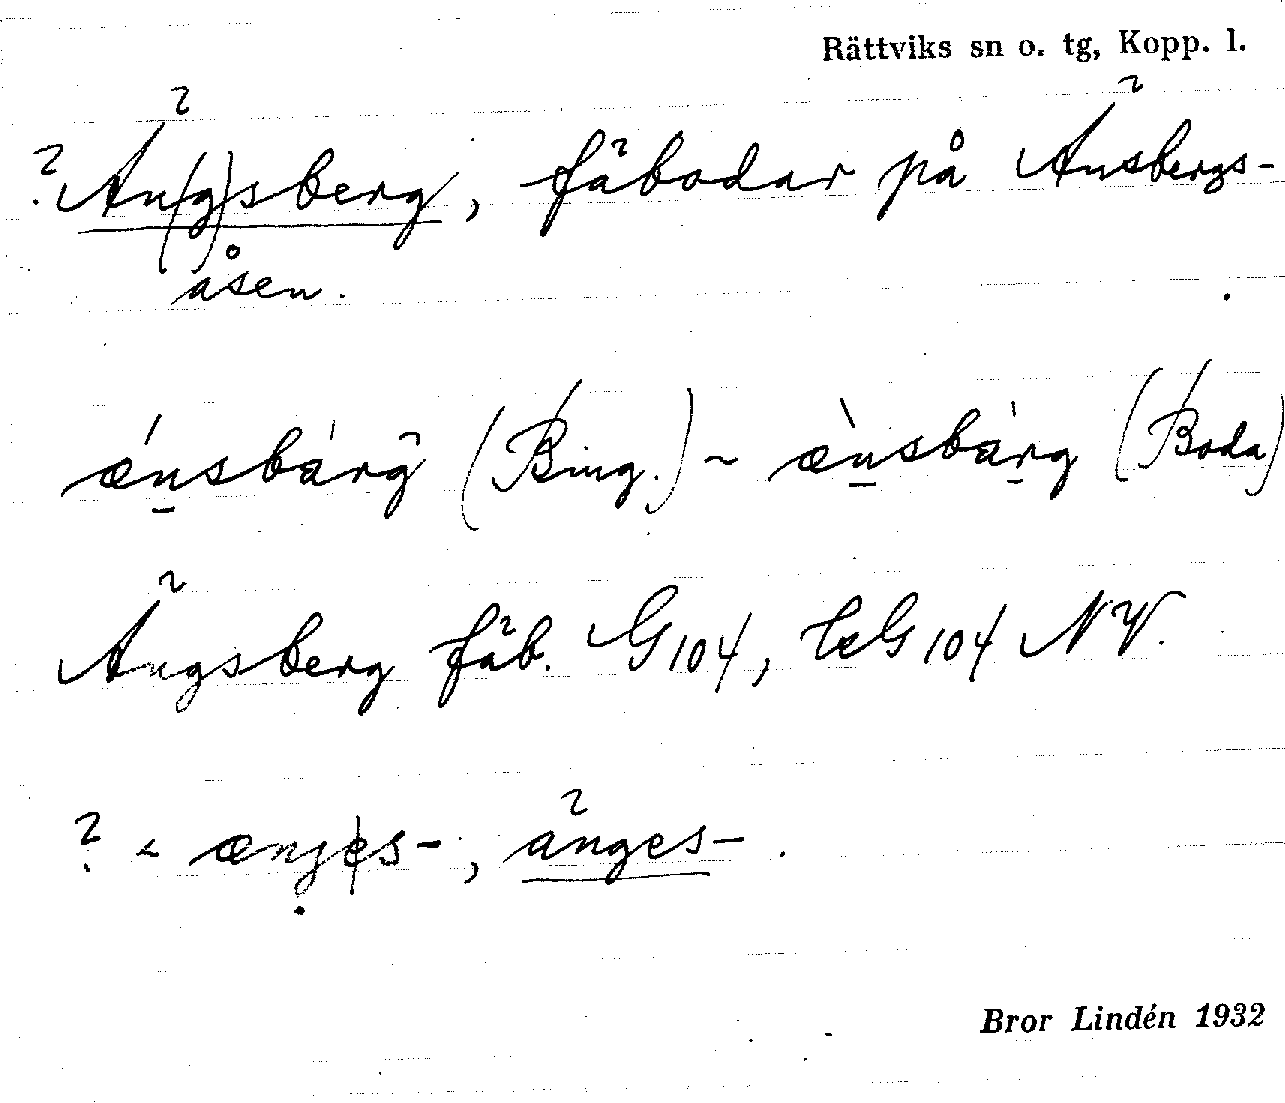 Rättviks sn o. tg, Kopp. l.
? Än(g)sberg, fäbodar på Änsbergs-
åsen.
ǽnsbárg (Bing.) ~ æ̀nsbàrg (Boda)
Ängsberg fäb. G104, leG 104 NV.
? < ænges-, änges-.
Bror Lindén 1932